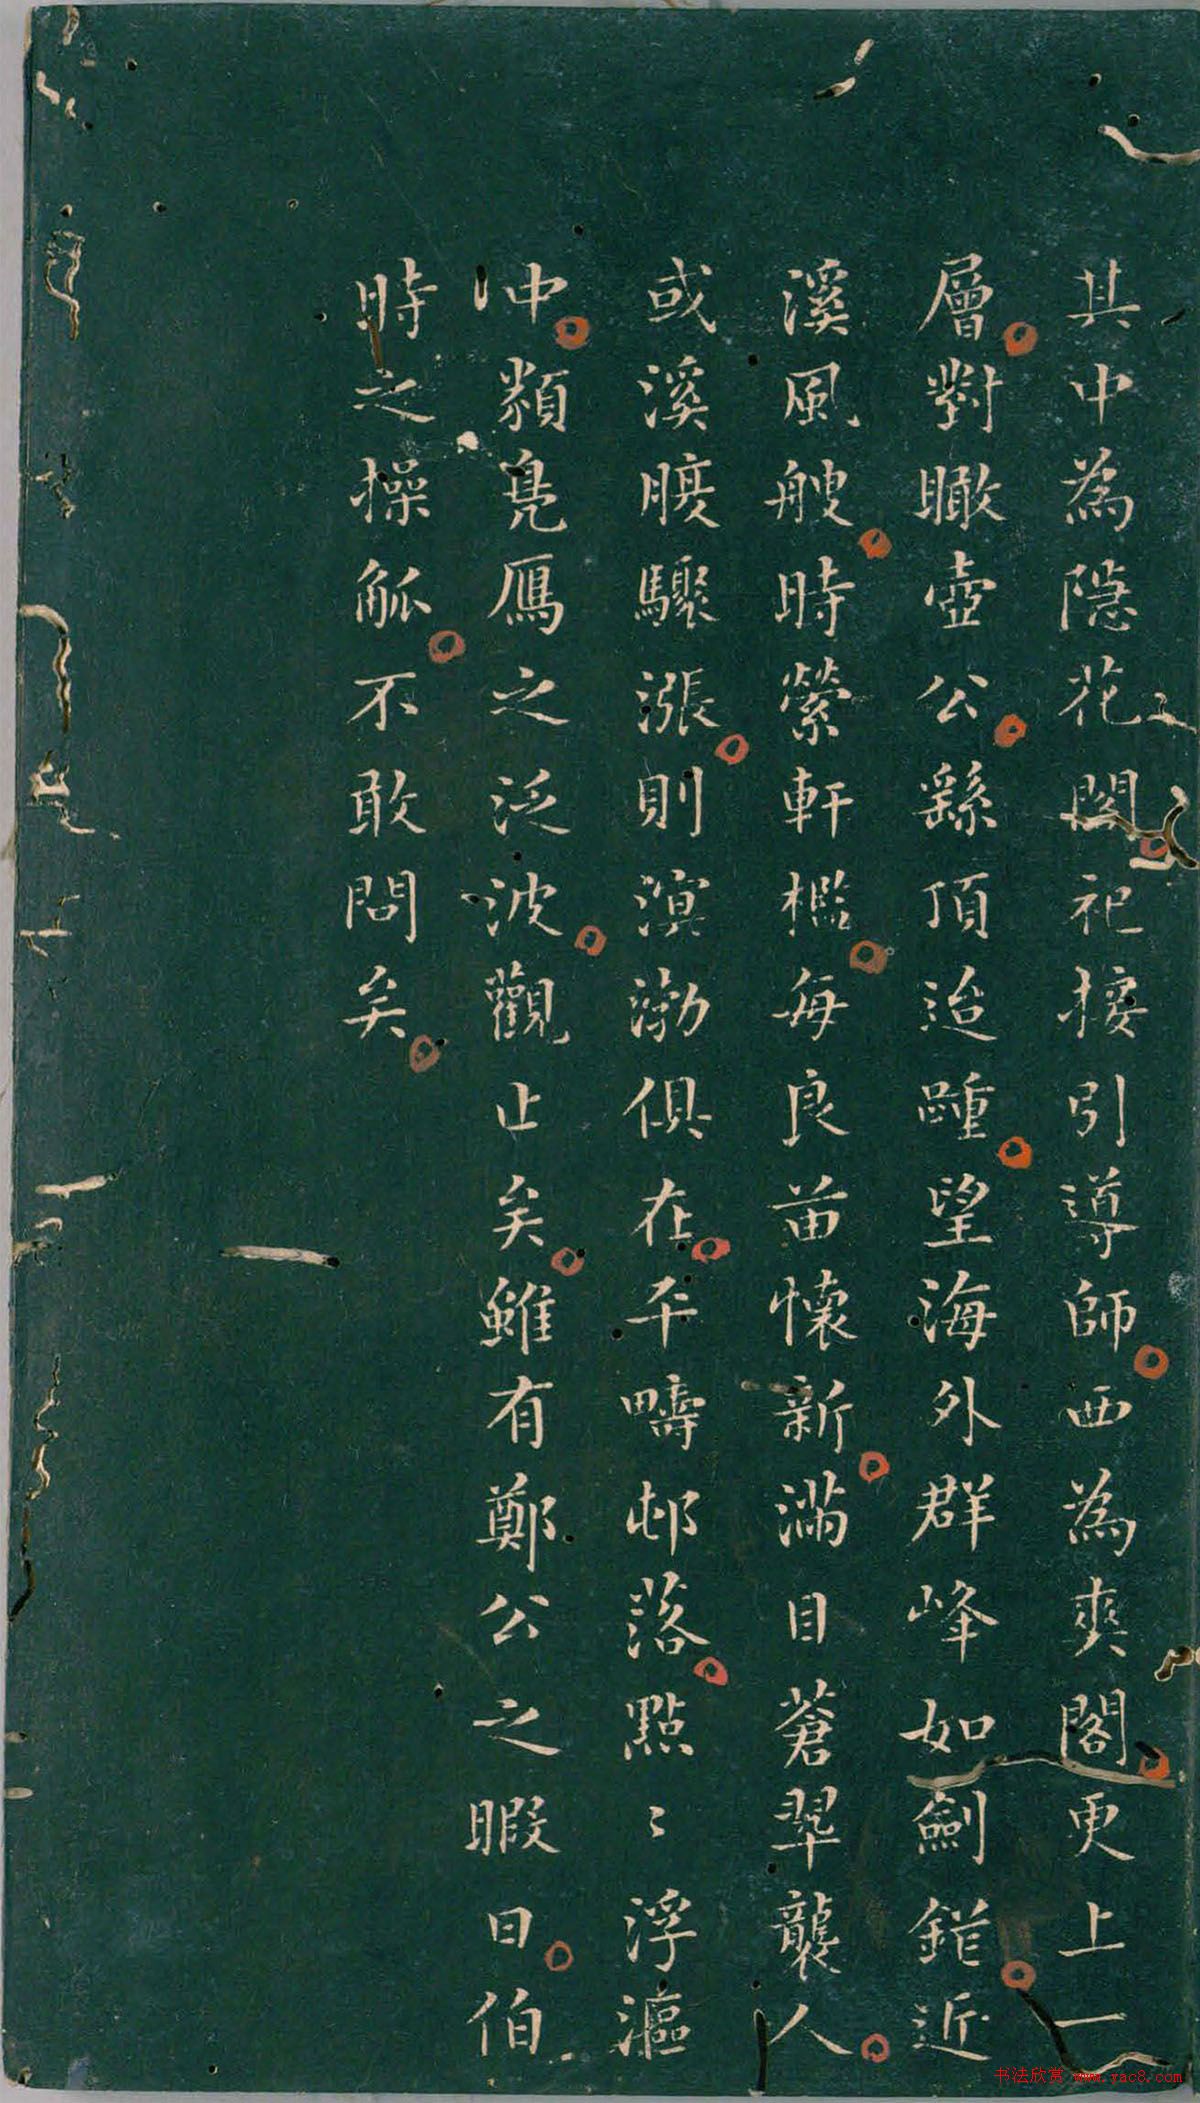 其中為隱花閣祀接引導師西為爽閣更上一
層對瞰壺公繇頂迨踵望海外群峰如劍錯近
溪風艘時縈軒檻每良苗懷新滿目蒼翠襲人
或溪腠驟漲則溟渤俱在平疇邨落點〻浮漚
中類鳧鴈之泛波觀止矣雖有鄭公之暇日伯
時之操觚不敢問矣
书法欣赏 www.yac8.com